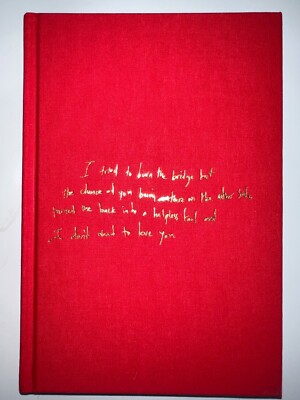 I tried to burn the bridge but
the chance of you being on the other side,
turned me back into a helpless fool and
I don't want to love you